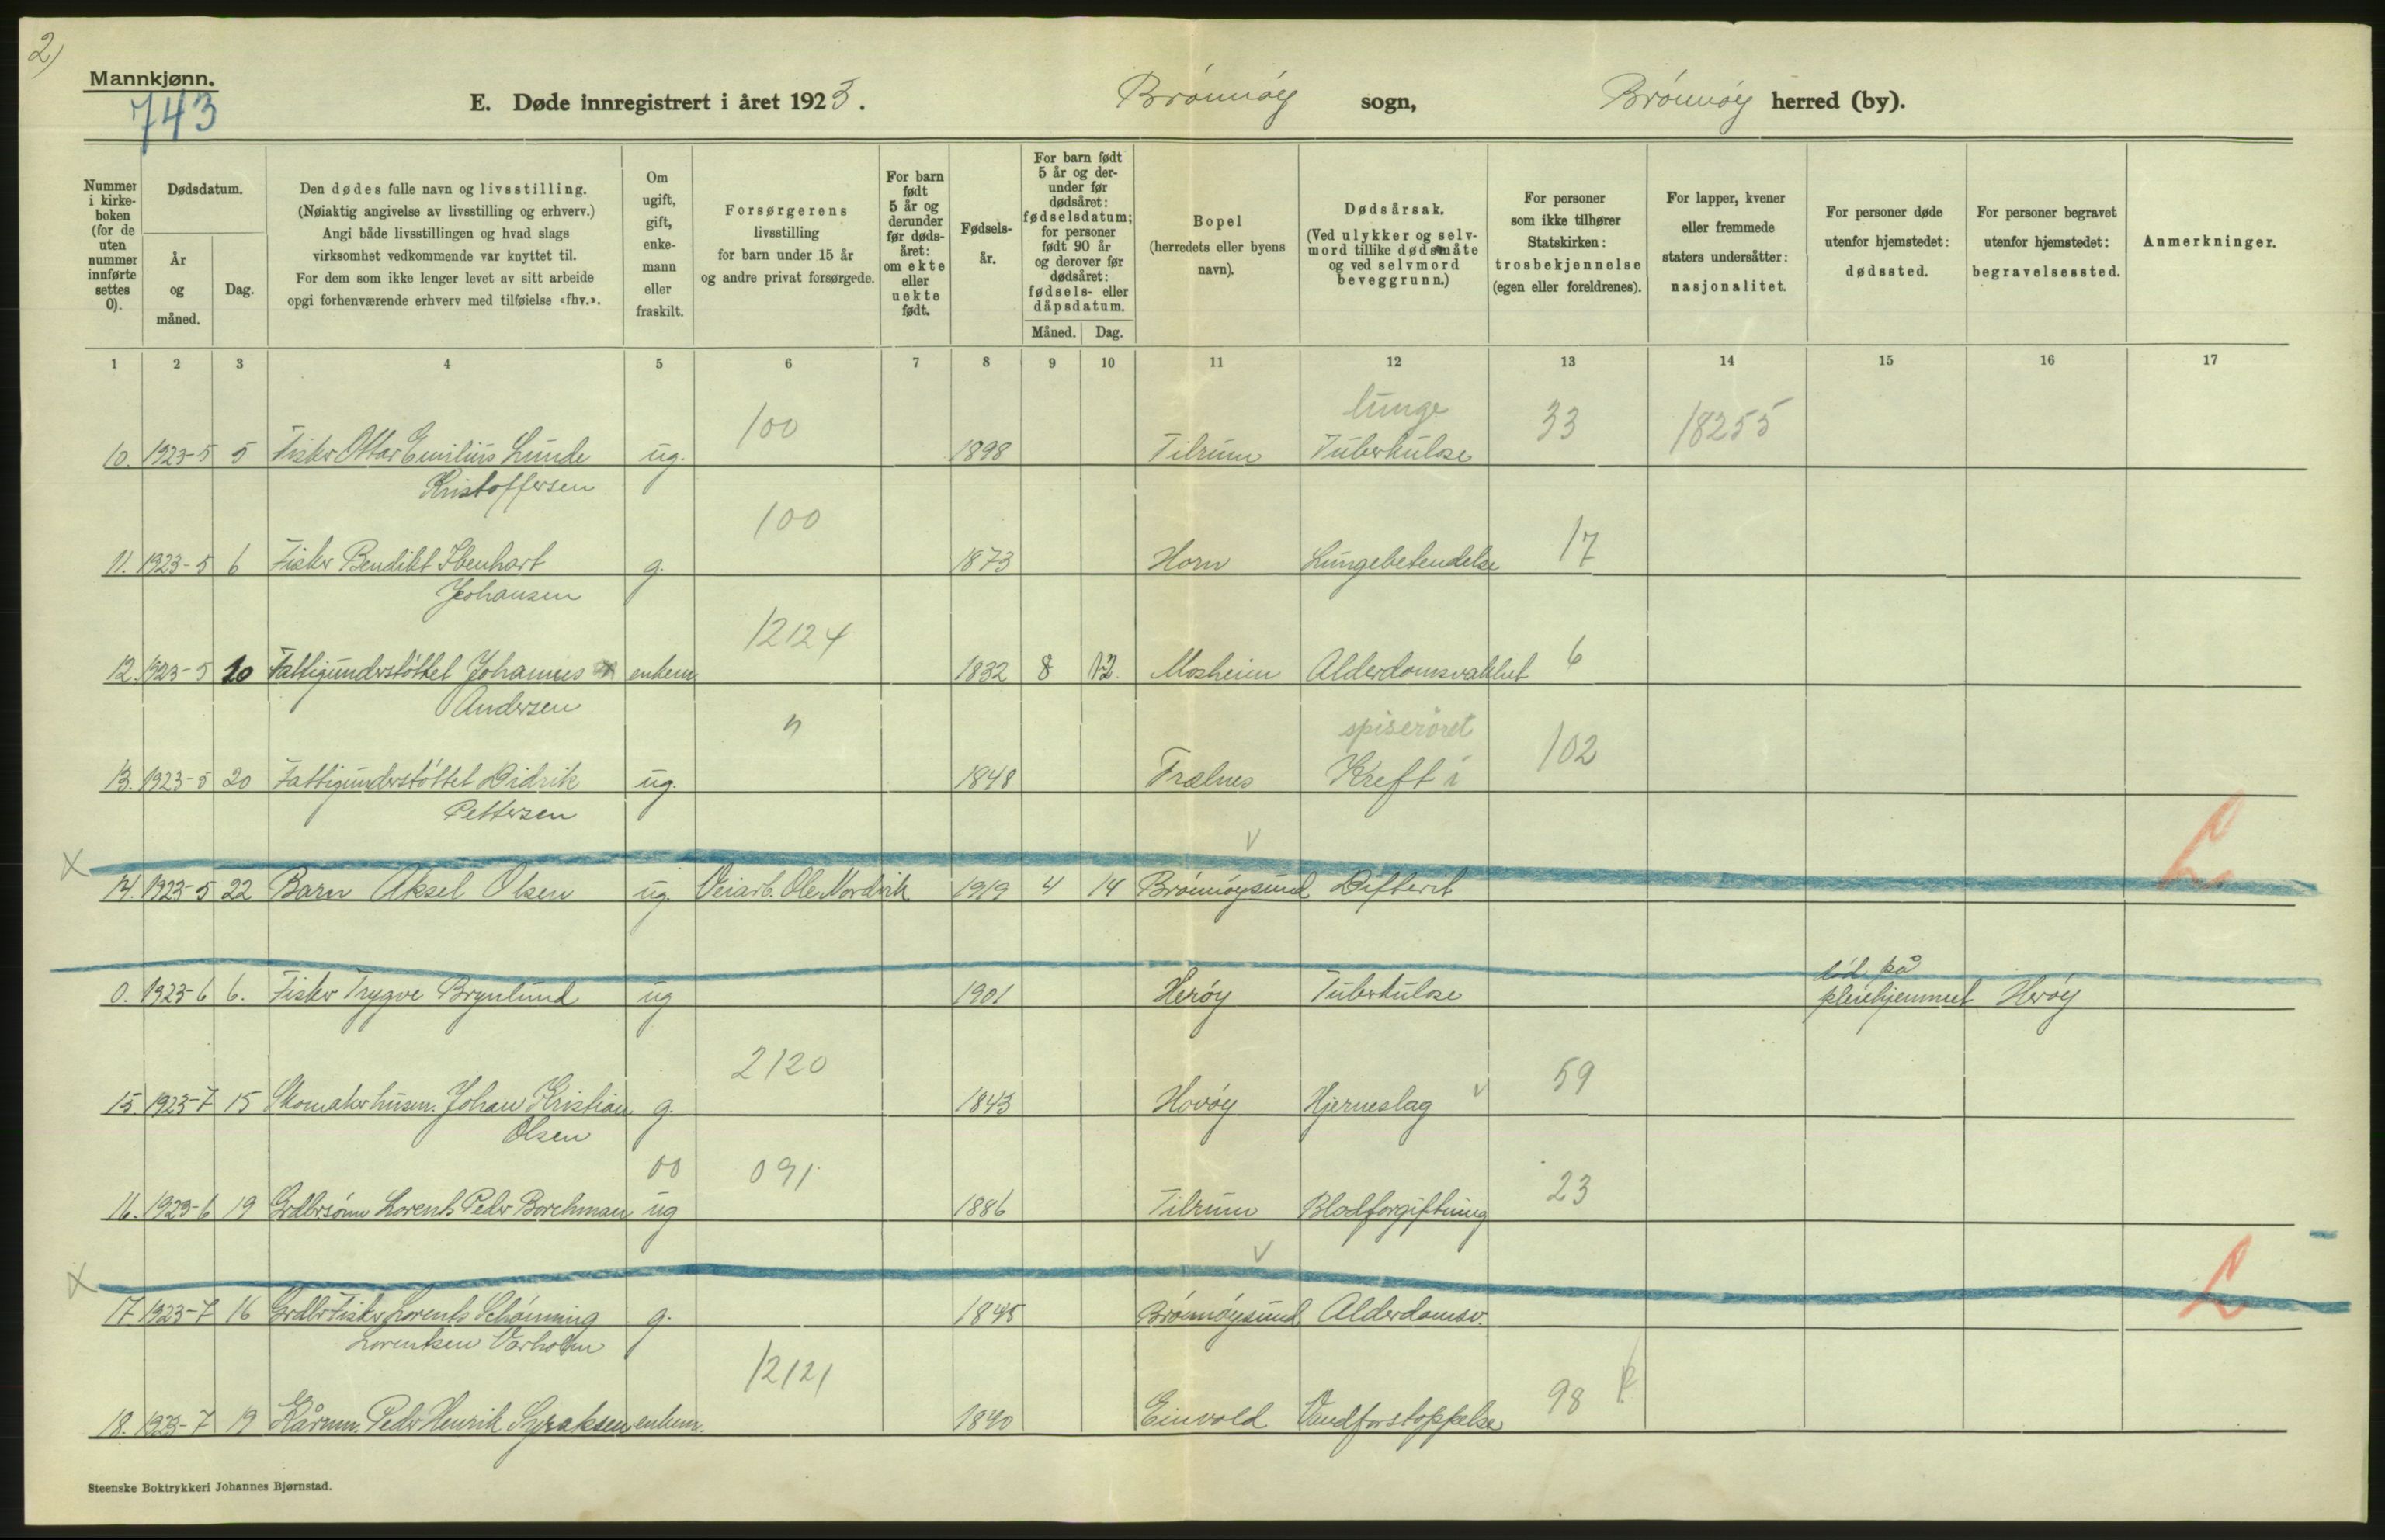 2)
Mannkjønn.
743
E. Døde innregistrert i året 1923. Brönnöy sogn, Brönnöy herred (by).
Nummer i kirke-boken (for de uten nummer innførte settes 0).
Dødsdatum.
År og måned.
Dag.
Den dødes fulle navn og livsstilling.
(Nøiaktig angivelse av livsstilling og erhverv.)
Angi både livsstillingen og hvad slags
virksomhet vedkommende var knyttet til.
For dem som ikke lenger levet av sitt arbeide
opgi forhenværende erhverv med tilføielse «fhv.».
Om ugift, gift, enke-mann eller fraskilt.
Forsørgerens
livsstilling
for barn under 15 år
og andre privat forsørgede.
For barn født 5 år og derunder før døds-året: om ekte eller uekte født.
Fødsels-år.
For barn født 5 år og der-under før dødsåret: fødselsdatum; for personer født 90 år og derover før dødsåret: fødsels- eller dåpsdatum.
Måned. Dag.
Bopel
(herredets eller byens navn).
Dødsårsak.
(Ved ulykker og selv-mord tillike dødsmåte og ved selvmord beveggrunn.)
For personer
som ikke tilhører
Statskirken:
trosbekjennelse
(egen eller foreldrenes).
For lapper, kvener
eller fremmede
staters undersåtter:
nasjonalitet.
For personer døde
utenfor hjemstedet:
dødssted.
For personer begravet
utenfor hjemstedet:
begravelsessted.
Anmerkninger.
1 2 3 4 5 6 7 8 9 10 11 12 13 14 15 16 17
100 lunge 33 18255
10. 1923-5 5 Fisker Ottar Emilius Lunde ug. 1898 Tilrum Tuberkulose
Kristoffersen
100 17
11. 1923-5 6 Fisker Bendikt Ibenhart g. 1873 Horn Lungebetendelse
Johansen
12124 6
12. 1923-5 10 Fattigunderstöttet Johannes enkem 1832 8 12. Mosheim Alderdomsvakhet
Andersen
" spiseröret 102
13. 1923-5 20 Fattigunderstöttet Didrik ug. 1848 Trælnes Kreft i
Pettersen
X v L
14. 1923-5 22 Barn Aksel Olsen ug. Veiarb. Ole Nordvik 1919 4 14 Brönnöysund Difterit
död på
0. 1923-6 6. Fisker Trygve Brynlund ug 1901 Heröy Tuberkulose pleiehjemmet Heröy
2120 59
15. 1923-7 15 Skomaker husm. Johan Kristian g. 1843 Hovöy Hjerneslag v
Olsen
00 091 23
16. 1923-6 19 Grdbrsönn Lorents Peder Borchman ug 1886 Tilrum Blodforgiftning
X v L
17. 1923-7 16 Grdbr Fisker Lorents Schönning g. 1845 Brönnöysund Alderdomsv.
Lorentsen Varholm
12121 98
18. 1923-7 19 Kårm. Peder Henrik Syraksen enkem. 1840 Einvold Vandforstoppelse
Steenske Boktrykkeri Johannes Bjørnstad.